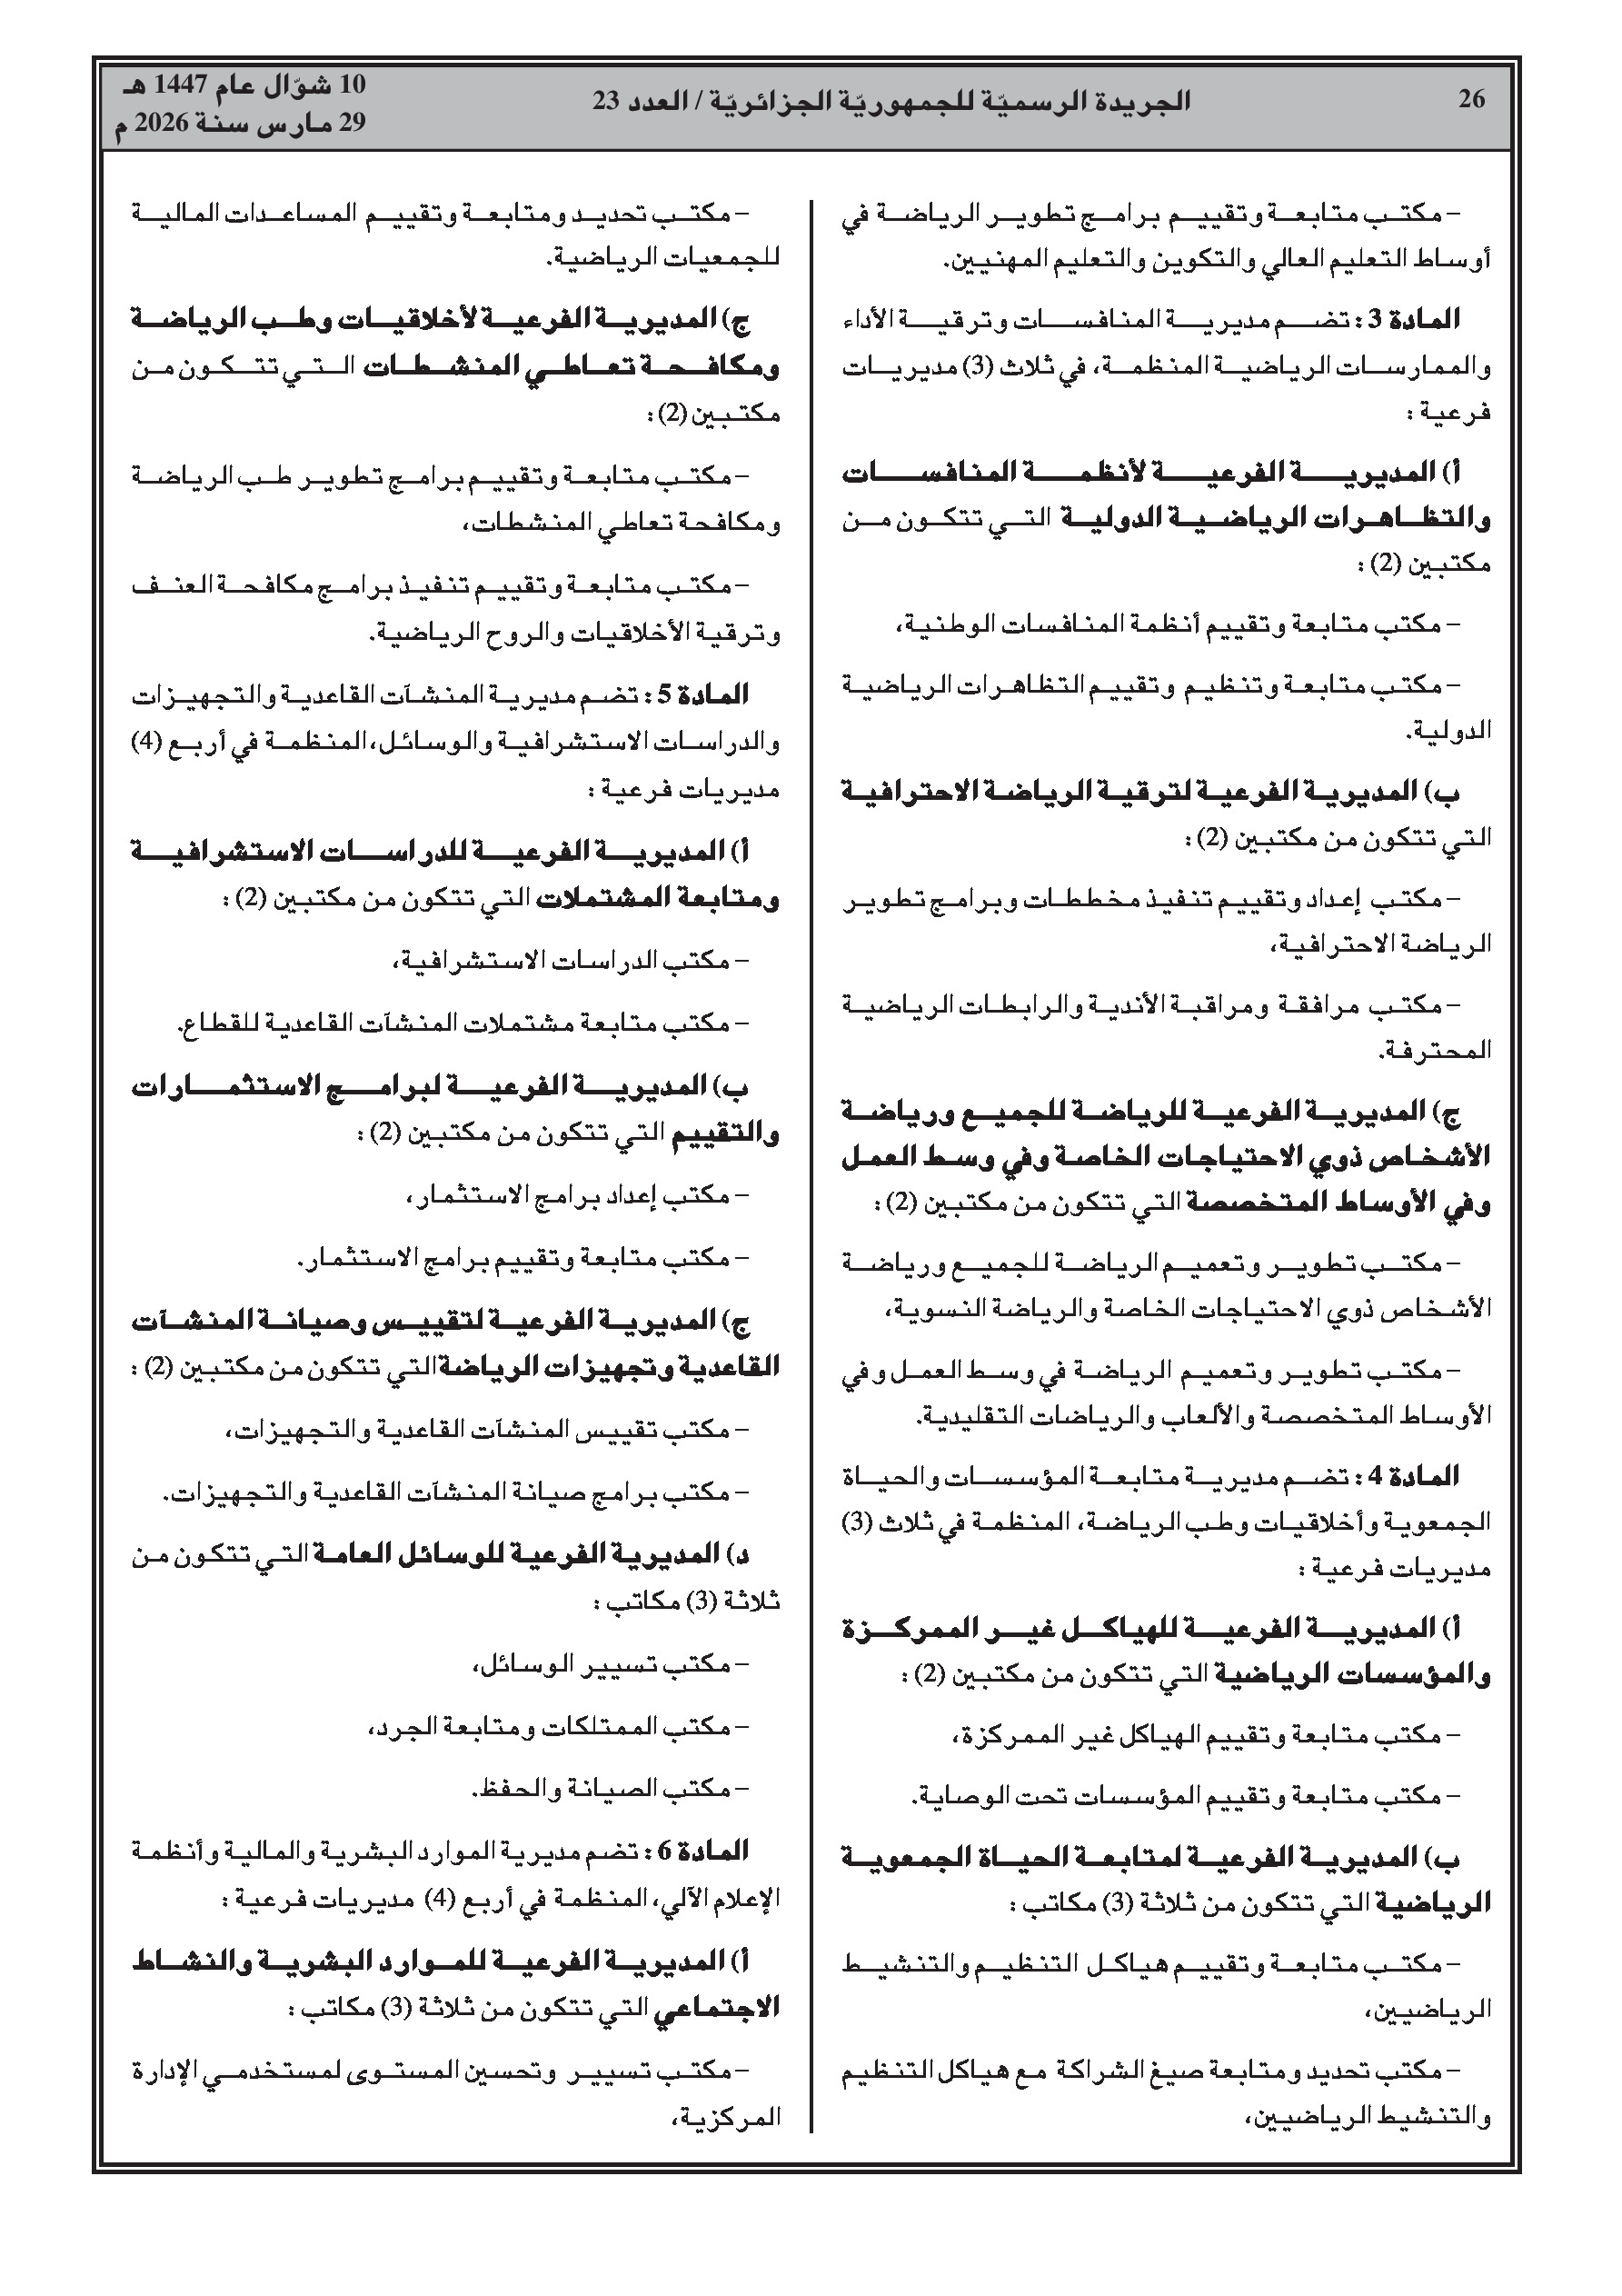 26
الجريدة الرسميّة للجمهوريّة الجزائريّة / العدد 23
10 شوّال عام 1447 هـ
29 مارس سنة 2026 م
– مكتب متابعة وتقييم برامج تطوير الرياضة في
أوساط التعليم العالي والتكوين والتعليم المهنيين.
المادة 3 : تضم مديرية المنافسات وترقية الأداء
والممارسات الرياضية المنظمة، في ثلاث (3) مديريات
فرعية :
أ) المديرية الفرعية لأنظمة المنافسات
والتظاهرات الرياضية الدولية التي تتكون من
مكتبين (2) :
– مكتب متابعة وتقييم أنظمة المنافسات الوطنية،
– مكتب متابعة وتنظيم وتقييم التظاهرات الرياضية
الدولية.
ب) المديرية الفرعية لترقية الرياضة الاحترافية
التي تتكون من مكتبين (2) :
– مكتب إعداد وتقييم تنفيذ مخططات وبرامج تطوير
الرياضة الاحترافية،
– مكتب مرافقة ومراقبة الأندية والرابطات الرياضية
المحترفة.
ج) المديرية الفرعية للرياضة للجميع ورياضة
الأشخاص ذوي الاحتياجات الخاصة وفي وسط العمل
وفي الأوساط المتخصصة التي تتكون من مكتبين (2) :
– مكتب تطوير وتعميم الرياضة للجميع ورياضة
الأشخاص ذوي الاحتياجات الخاصة والرياضة النسوية،
– مكتب تطوير وتعميم الرياضة في وسط العمل وفي
الأوساط المتخصصة والألعاب والرياضات التقليدية.
المادة 4 : تضم مديرية متابعة المؤسسات والحياة
الجمعوية وأخلاقيات وطب الرياضة، المنظمة في ثلاث (3)
مديريات فرعية :
أ) المديرية الفرعية للهياكل غير الممركزة
والمؤسسات الرياضية التي تتكون من مكتبين (2) :
– مكتب متابعة وتقييم الهياكل غير الممركزة،
– مكتب متابعة وتقييم المؤسسات تحت الوصاية.
ب) المديرية الفرعية لمتابعة الحياة الجمعوية
الرياضية التي تتكون من ثلاثة (3) مكاتب :
– مكتب متابعة وتقييم هياكل التنظيم والتنشيط
الرياضيين،
– مكتب تحديد ومتابعة صيغ الشراكة مع هياكل التنظيم
والتنشيط الرياضيين،
– مكتب تحديد ومتابعة وتقييم المساعدات المالية
للجمعيات الرياضية.
ج) المديرية الفرعية لأخلاقيات وطب الرياضة
ومكافحة تعاطي المنشطات التي تتكون من
مكتبين (2) :
– مكتب متابعة وتقييم برامج تطوير طب الرياضة
ومكافحة تعاطي المنشطات،
– مكتب متابعة وتقييم تنفيذ برامج مكافحة العنف
وترقية الأخلاقيات والروح الرياضية.
المادة 5 : تضم مديرية المنشآت القاعدية والتجهيزات
والدراسات الاستشرافية والوسائل، المنظمة في أربع (4)
مديريات فرعية :
أ) المديرية الفرعية للدراسات الاستشرافية
ومتابعة المشتملات التي تتكون من مكتبين (2) :
– مكتب الدراسات الاستشرافية،
– مكتب متابعة مشتملات المنشآت القاعدية للقطاع.
ب) المديرية الفرعية لبرامج الاستثمارات
والتقييم التي تتكون من مكتبين (2) :
– مكتب إعداد برامج الاستثمار،
– مكتب متابعة وتقييم برامج الاستثمار.
ج) المديرية الفرعية لتقييس وصيانة المنشآت
القاعدية وتجهيزات الرياضة التي تتكون من مكتبين (2) :
– مكتب تقييس المنشآت القاعدية والتجهيزات،
– مكتب برامج صيانة المنشآت القاعدية والتجهيزات.
د) المديرية الفرعية للوسائل العامة التي تتكون من
ثلاثة (3) مكاتب :
– مكتب تسيير الوسائل،
– مكتب الممتلكات ومتابعة الجرد،
– مكتب الصيانة والحفظ.
المادة 6 : تضم مديرية الموارد البشرية والمالية وأنظمة
الإعلام الآلي، المنظمة في أربع (4) مديريات فرعية :
أ) المديرية الفرعية للموارد البشرية والنشاط
الاجتماعي التي تتكون من ثلاثة (3) مكاتب :
– مكتب تسيير وتحسين المستوى لمستخدمي الإدارة
المركزية،